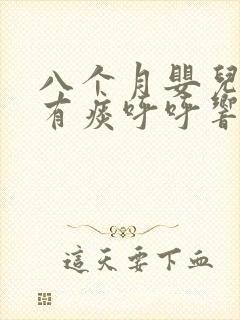 八个月嬰兒
有痰呼呼響
這天要下血